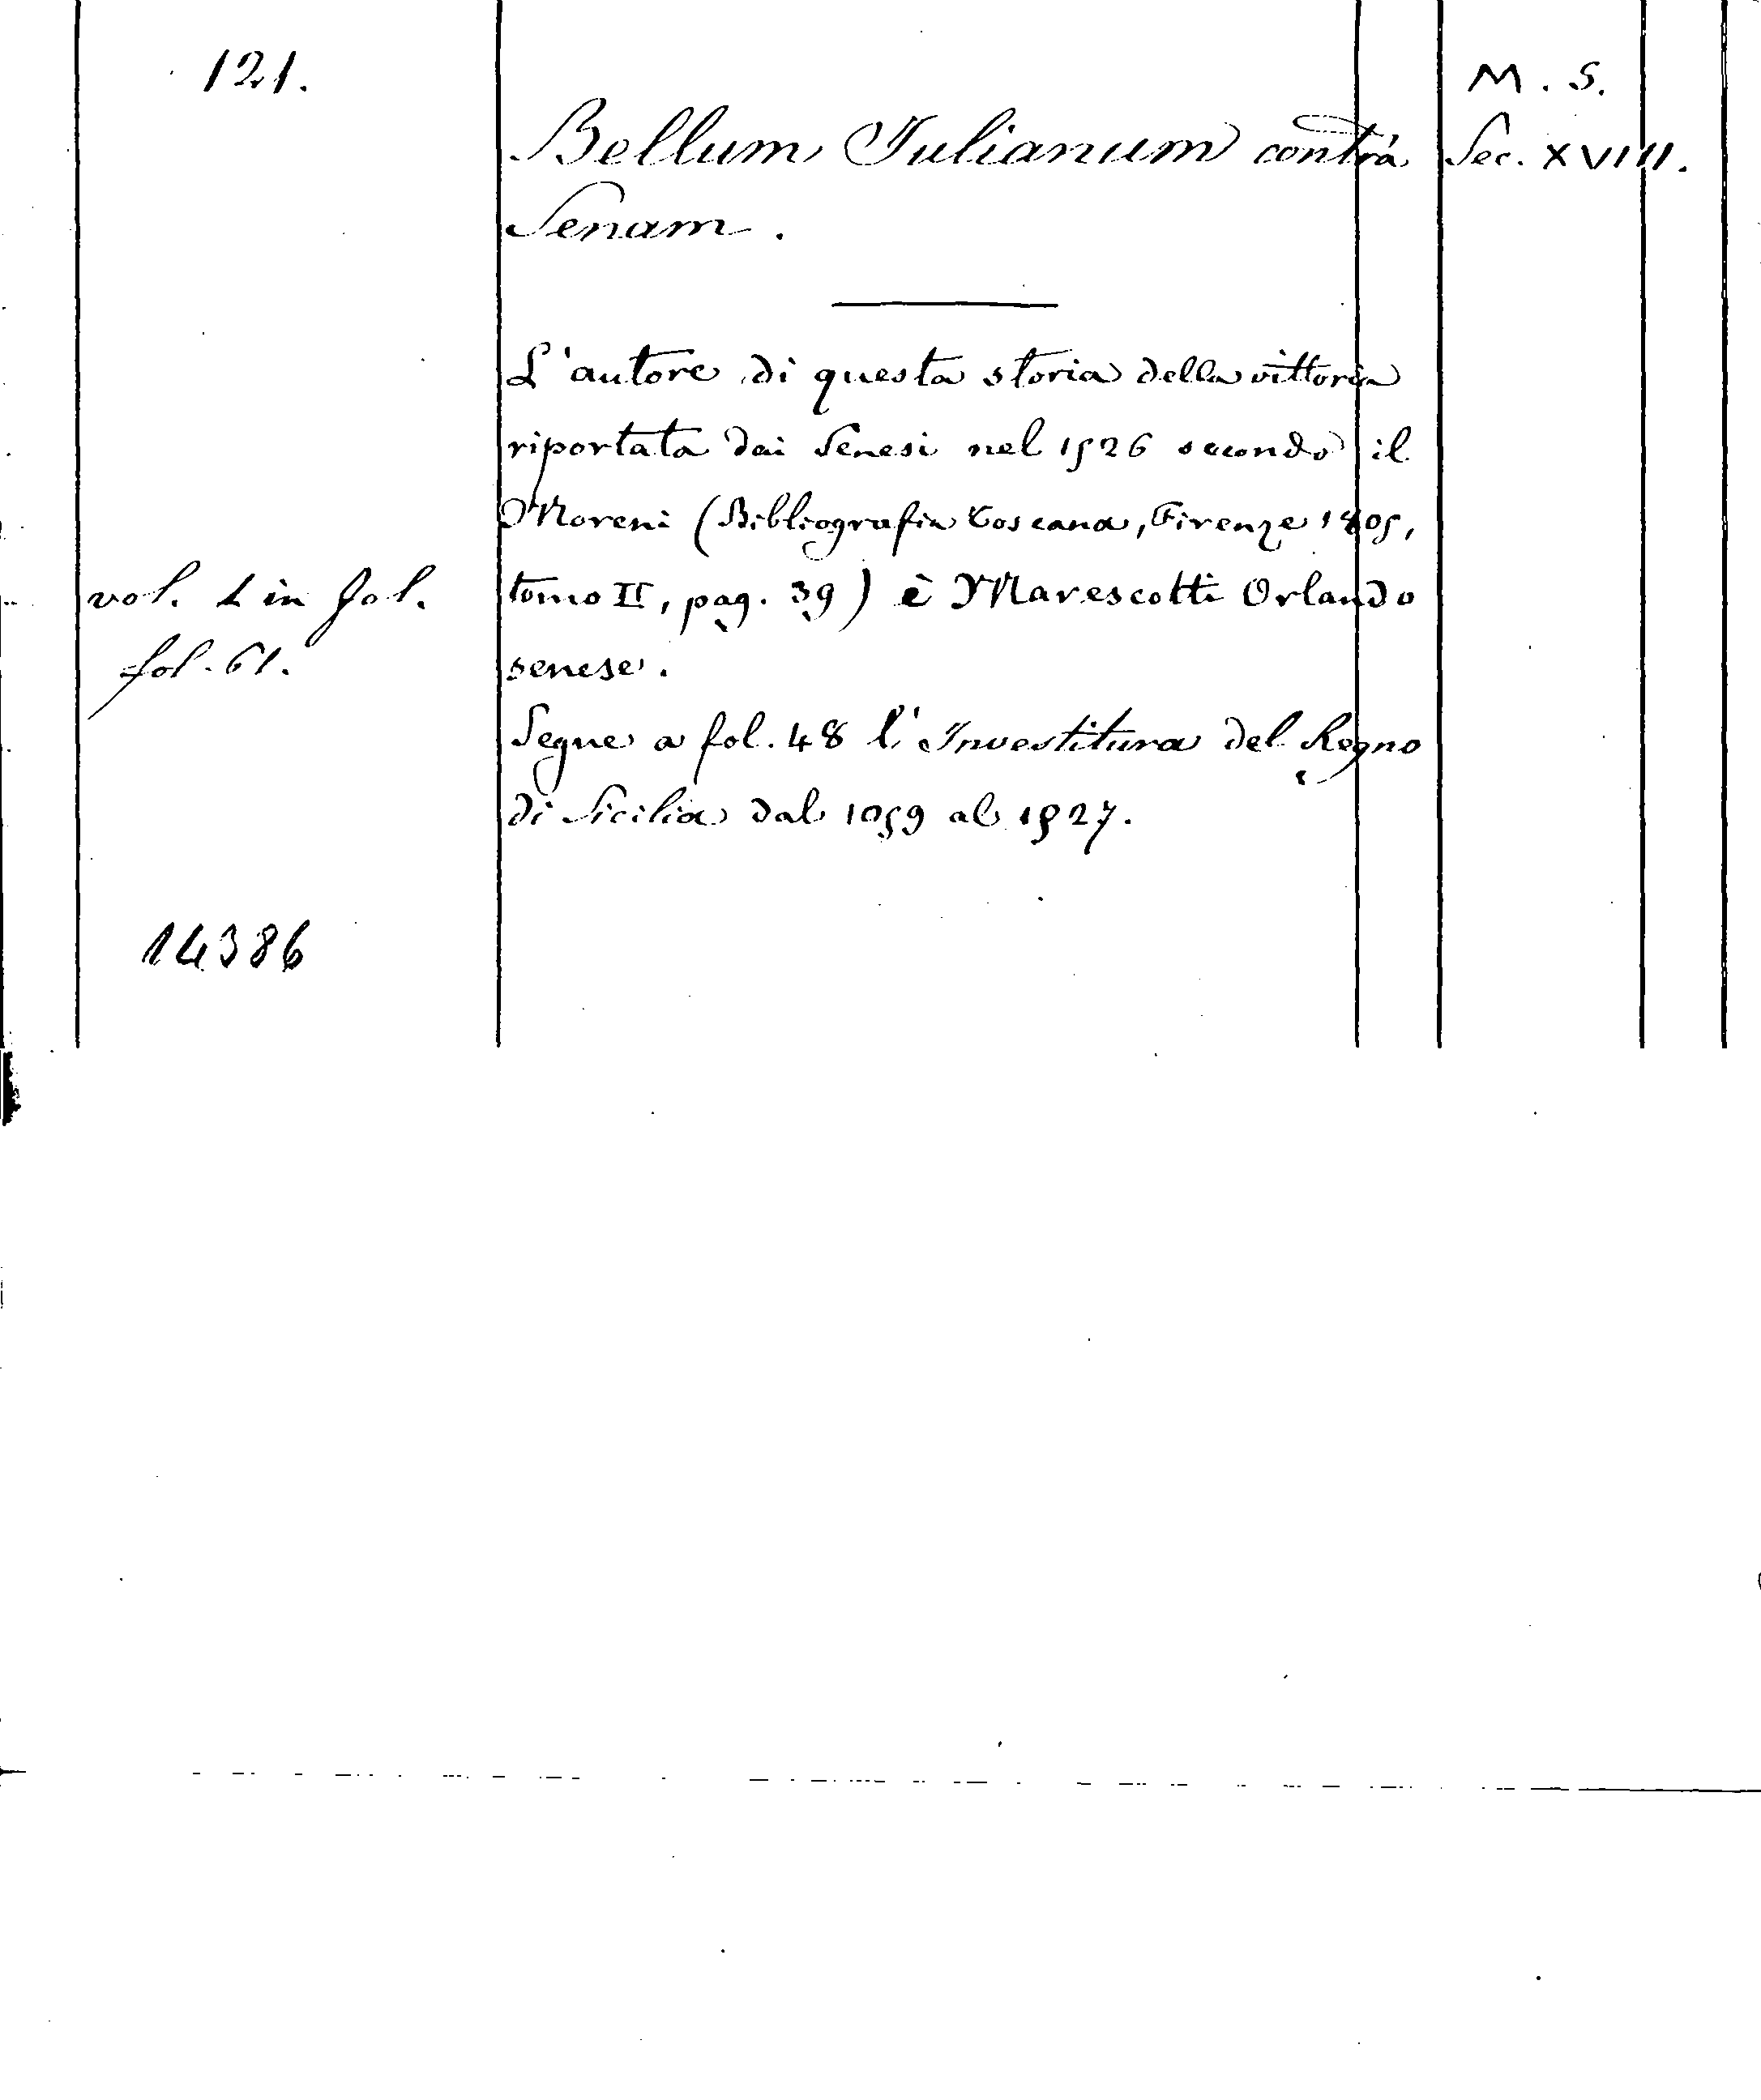 121.
M. S.
Bellum Julianum contrà
Sec. XVIII.
Senam.
L'autore di questa storia della vittoria
riportata dai Senesi nel 1526 secondo il
Moreni (Bibliografia Toscana, Firenze 1805,
tomo II, pag. 39) è Marescotti Orlando
senese.
vol. 1 in fol.
fol. 61.
Segue a fol. 48 l'Investitura del Regno
di Sicilia dal 1059 al 1527.
14386